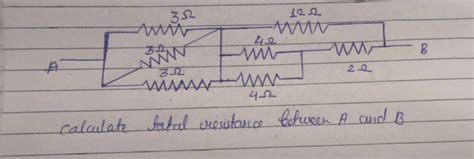 3Ω 12Ω
3Ω 4Ω B
A 3Ω 2Ω
4Ω
calculate total resistance between A and B